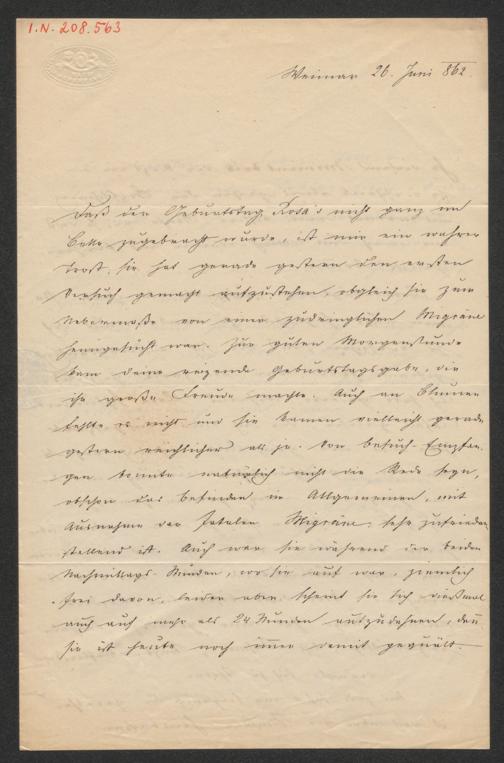 I.N. 208.563
Weimar 26. Juni 862.
Daß der Geburtstag Rosa's nicht ganz im
Bette zugebracht wurde, ist mir ein wahrer
Trost, sie hat gerade gestern den ersten
Versuch gemacht aufzustehen, obgleich sie zum
Uebermaße von einer zudringlichen Migräne
heimgesucht war. Zur guten Morgenstunde
kam deine reizende Geburtstagsgabe, die
ihr große Freude machte. Auch an Blumen
fehlte es nicht und sie kamen vielleicht gerade
gestern reichlicher als je. Von Besuch-Empfan-
gen konnte natürlich nicht die Rede seyn,
obschon das Befinden im Allgemeinen, mit
Ausnahme der fatalen Migräne, sehr zufrieden
stellend ist. Auch war sie während der beiden
Nachmittags-Stunden, wo sie auf war, ziemlich
frei davon, leider aber scheint sie sich diesmal
auch auf mehr als 24 Stunden auszudehnen, den̄
sie ist heute noch im̄er damit gequält.